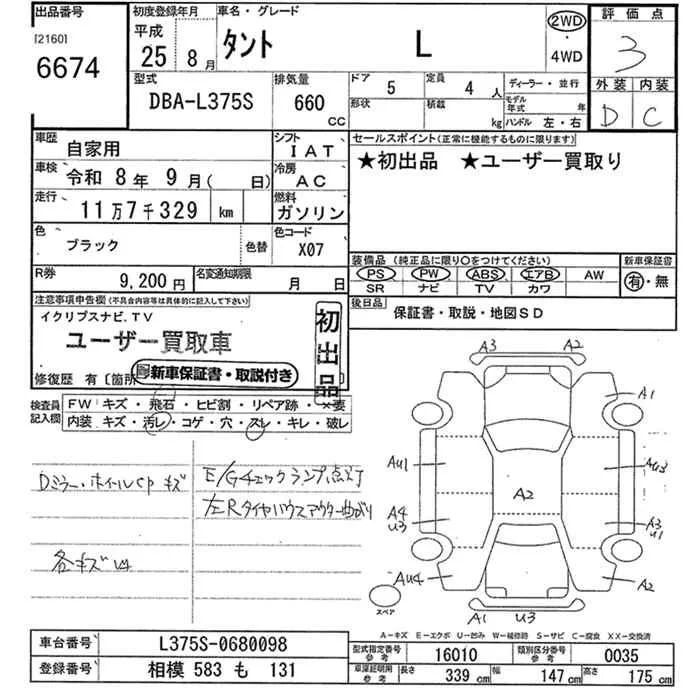 出品番号
[2160]
6674
初度登録年月
平成
25年8月
車名・グレード
タント L
2WD
・
4WD
評価点
3
外装 内装
D C
型式
DBA-L375S
排気量
660 CC
ドア
5
定員
4人
形状
積載
kg
ディーラー・並行
モデル年式 年
ハンドル 左・右
車歴
自家用
シフト
IAT
車検
令和 8年 9月( 日)
冷房
AC
走行
11万7千329 km
燃料
ガソリン
色
ブラック
色替
色コード
X07
R券
9,200円
名変通知期限
月 日
セールスポイント(正常に機能するものに限ります)
★初出品 ★ユーザー買取り
装備品(純正品に限り〇をつけてください)
新車保証書
PS PW ABS エアB AW
SR ナビ TV カワ
有・無
後日品
保証書・取説・地図SD
注意事項申告欄(不具合内容等は具体的に記入して下さい)
イクリプスナビ.TV
ユーザー買取車
初出品
新車保証書・取説付き
修復歴 有[箇所
検査員記入欄
FW キズ・飛石・ヒビ割・リペア跡・×要
内装 キズ・汚レ・コゲ・穴・スレ・キレ・破レ
Dミラー・ホイールCP キズ
E/Gチェックランプ点灯
左Rタイヤハウスアウター曲がり
各キズ凹
A3 A2
A1
AU1
AU3
A2
A4
U3
A3
U1
AU4
A2
スペア
A1 U3
A-キズ E-エクボ U-凹み W-補修跡 S-サビ C-腐食 XX-交換済
車台番号
L375S-0680098
登録番号
相模 583 も 131
型式指定番号 参考
16010
類別区分番号 参考
0035
車庫証明用 参考
長さ 339 cm
幅 147 cm
高さ 175 cm